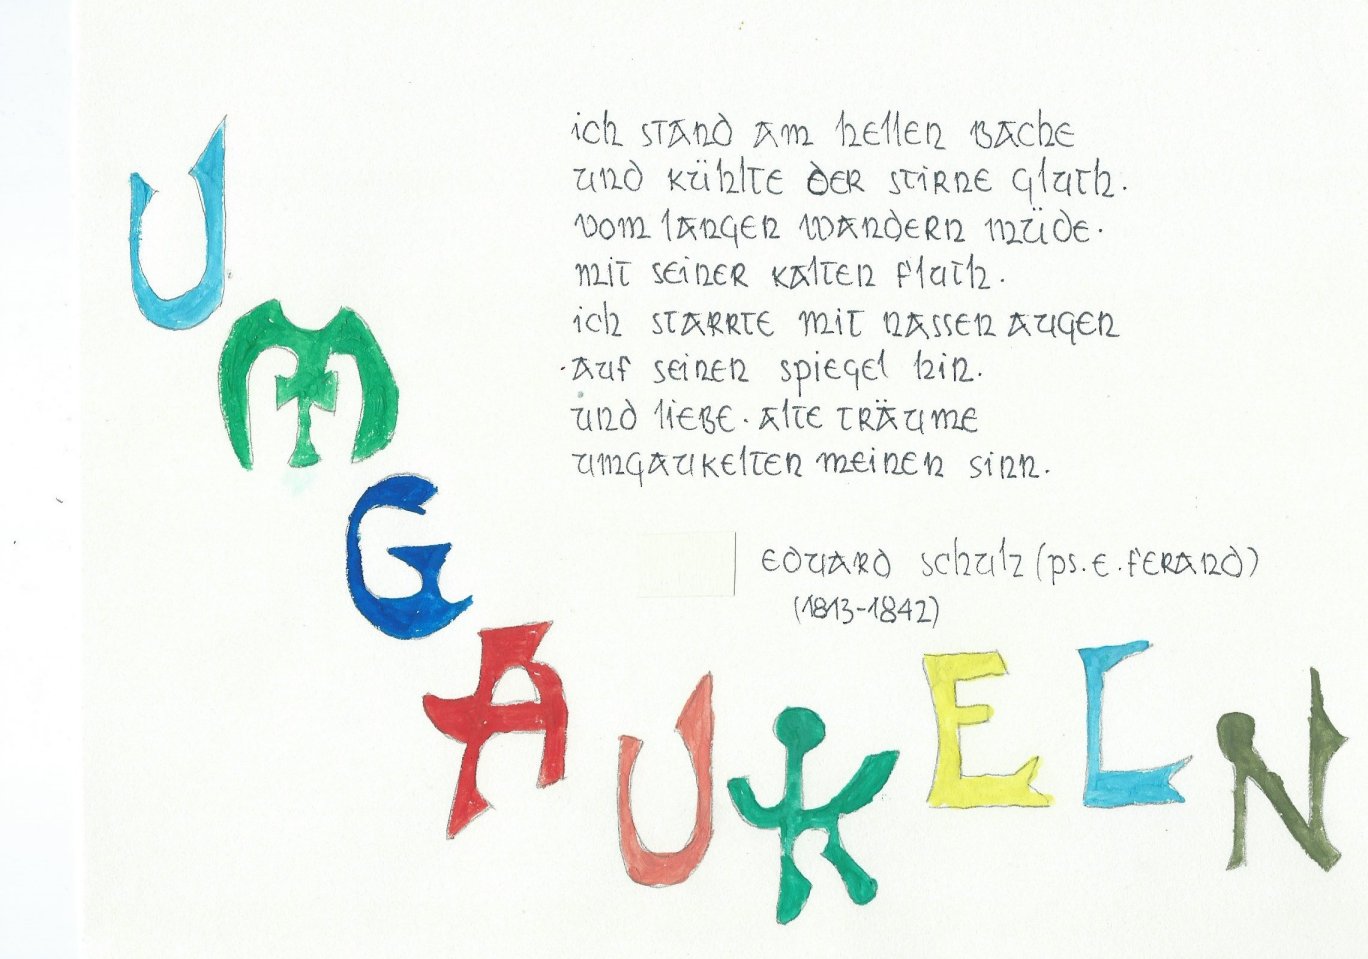 UMGAUKELN
ich stand am hellen Bache
und kühlte der Stirne Gluth.
vom langen Wandern müde.
mit seiner kalten Fluth.
ich starrte mit nassen Augen
auf seinen Spiegel hin.
und Liebe. alte Träume
umgaukelten meinen Sinn.
Eduard Schulz (Ps. E. Ferand)
(1813-1842)